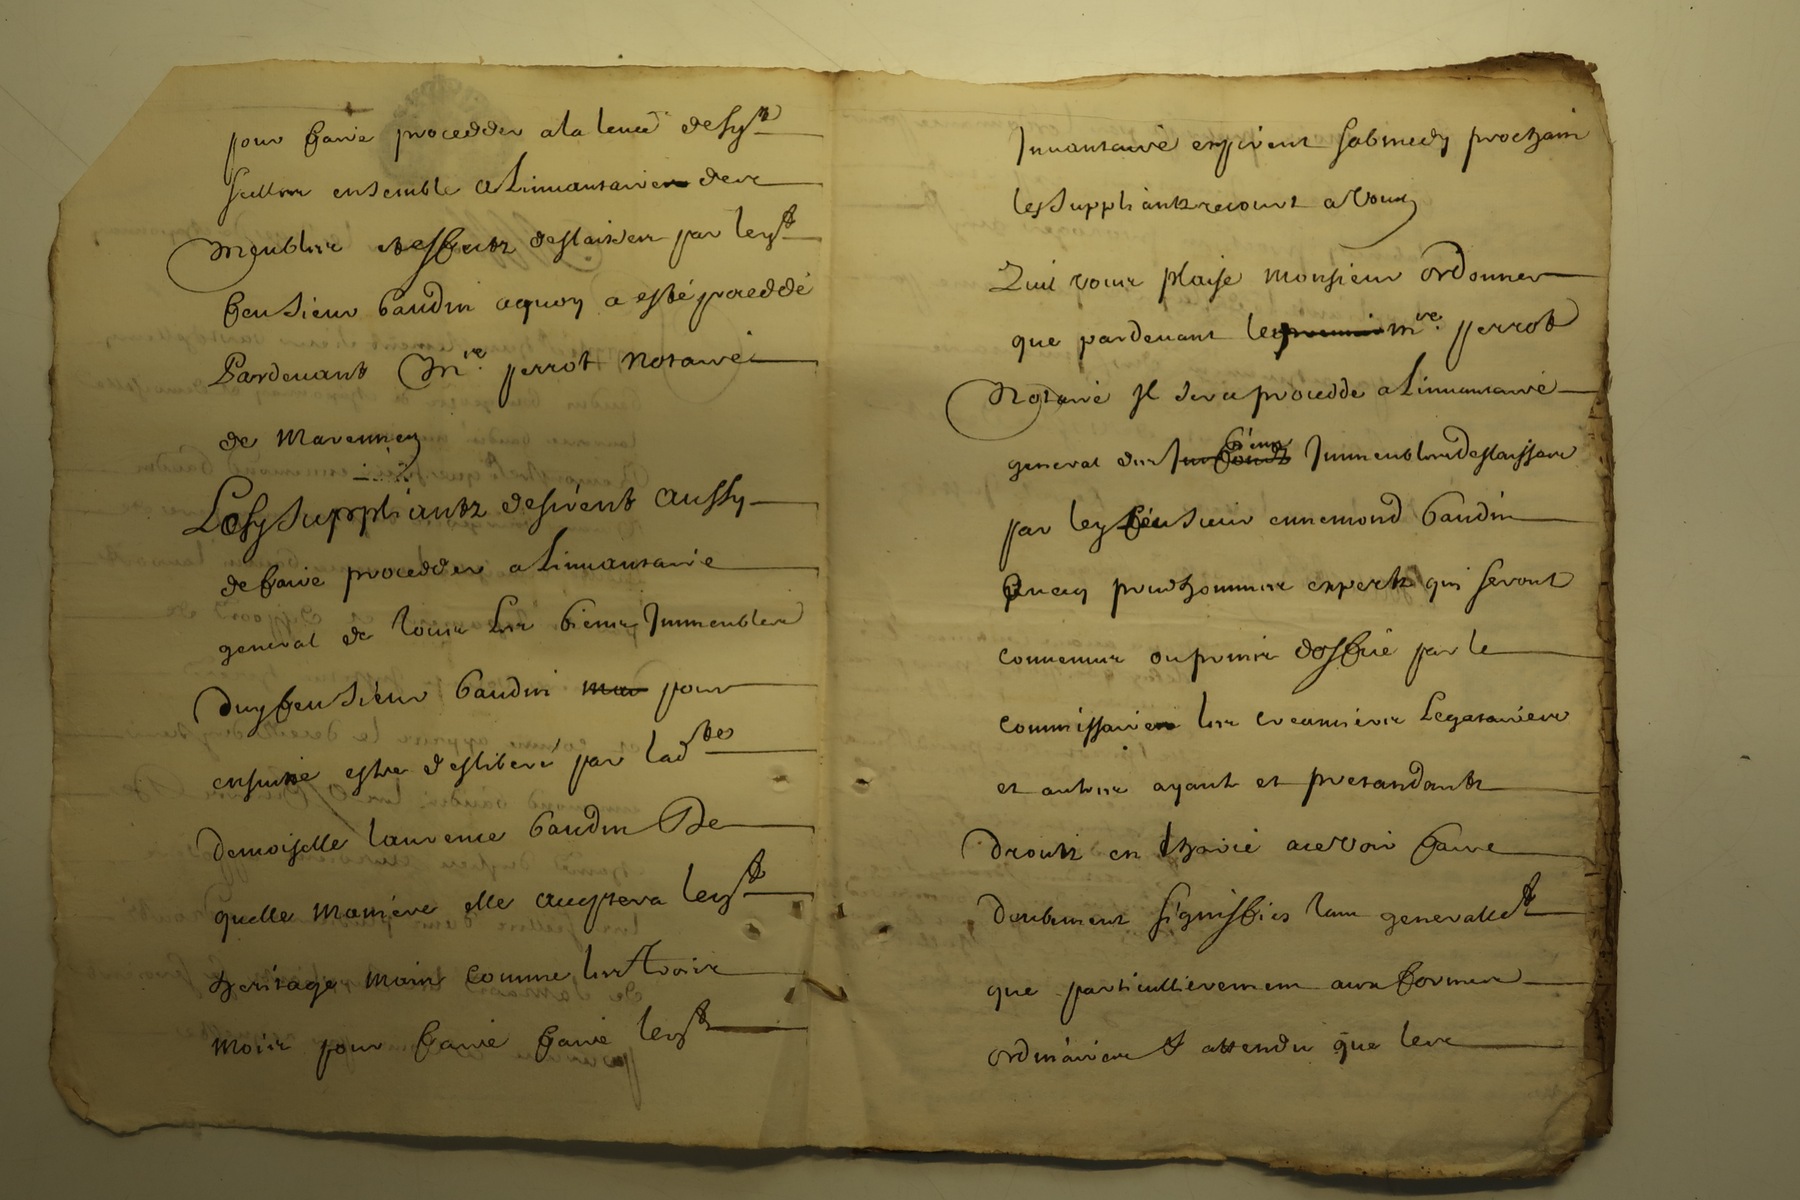 pour faire procedder a la levée desd.ts
scelles ensemble a Linvantaire des
Meubles et effects deslaissez par led.t
feu sieur baudin a quoy a esté proceddé
Pardevant M.re perrot Notaire
de Marennes
Lesd suppliants desirent aussy
de faire procedder a Linvantaire
general de tous Les biens Immeubles
dud feu sieur baudin pour
ensuitte estre desliberé par lad.te
demoiselle laurence baudin De
quelle maniere elle acceptera led.t
heritage mais comme les trois
mois pour faire faire led.t
Invantaire expirent sabmedy prochain
les suppliants recourt a Vous
Quil vous plaise Monsieur ordonner
que pardevant m.re perrot
Notaire Il sera procedde a Linvantaire
general des biens Immeubles deslaissez
par led feu sieur ennemond baudin
avecq preudhommes experts qui seront
convenus ou prins doffice par le
commissaire les creanciers Legataires
et autres ayant et pretandants
droits en lhoirie a ce Voir faire
deubement signiffies tant generallem.t
que particullierement aux formes
ordinaires & attendu que les